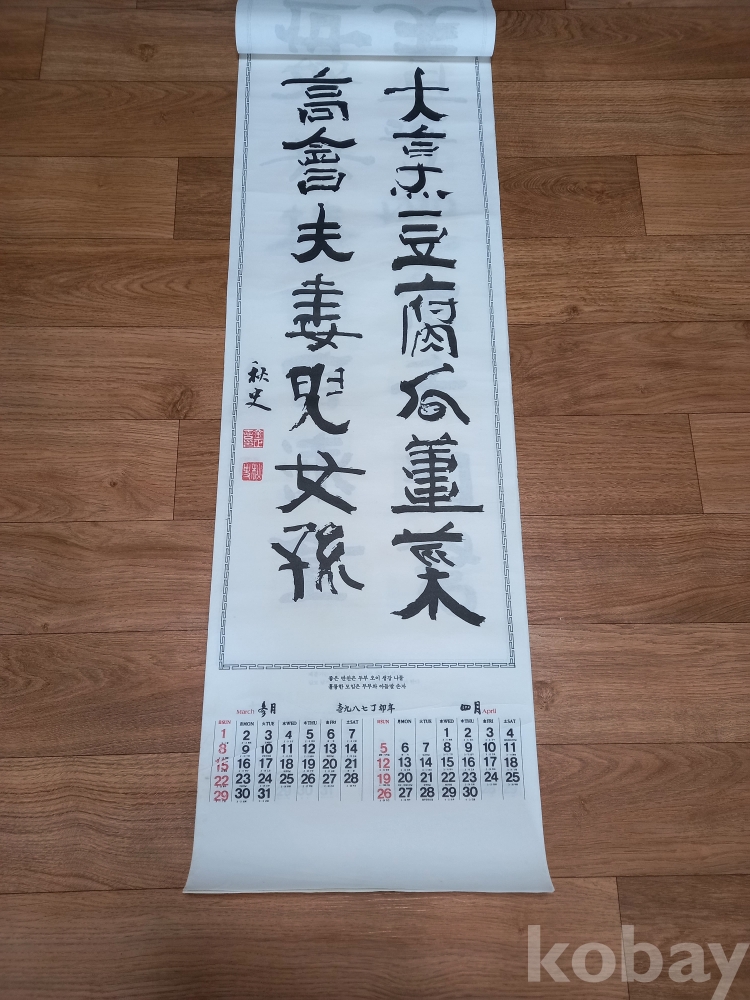 大烹豆腐瓜薑菜
高會夫妻兒女孫
秋史
좋은 반찬은 두부 오이 생강 나물
훌륭한 모임은 부부와 아들딸 손자
March 參月
壹九八七丁卯年
四月 April
日SUN 月MON 火TUE 水WED 木THU 金FRI 土SAT
1 2 3 4 5 6 7
8 9 10 11 12 13 14
15 16 17 18 19 20 21
22 23 24 25 26 27 28
29 30 31
日SUN 月MON 火TUE 水WED 木THU 金FRI 土SAT
1 2 3 4
5 6 7 8 9 10 11
12 13 14 15 16 17 18
19 20 21 22 23 24 25
26 27 28 29 30
kobay